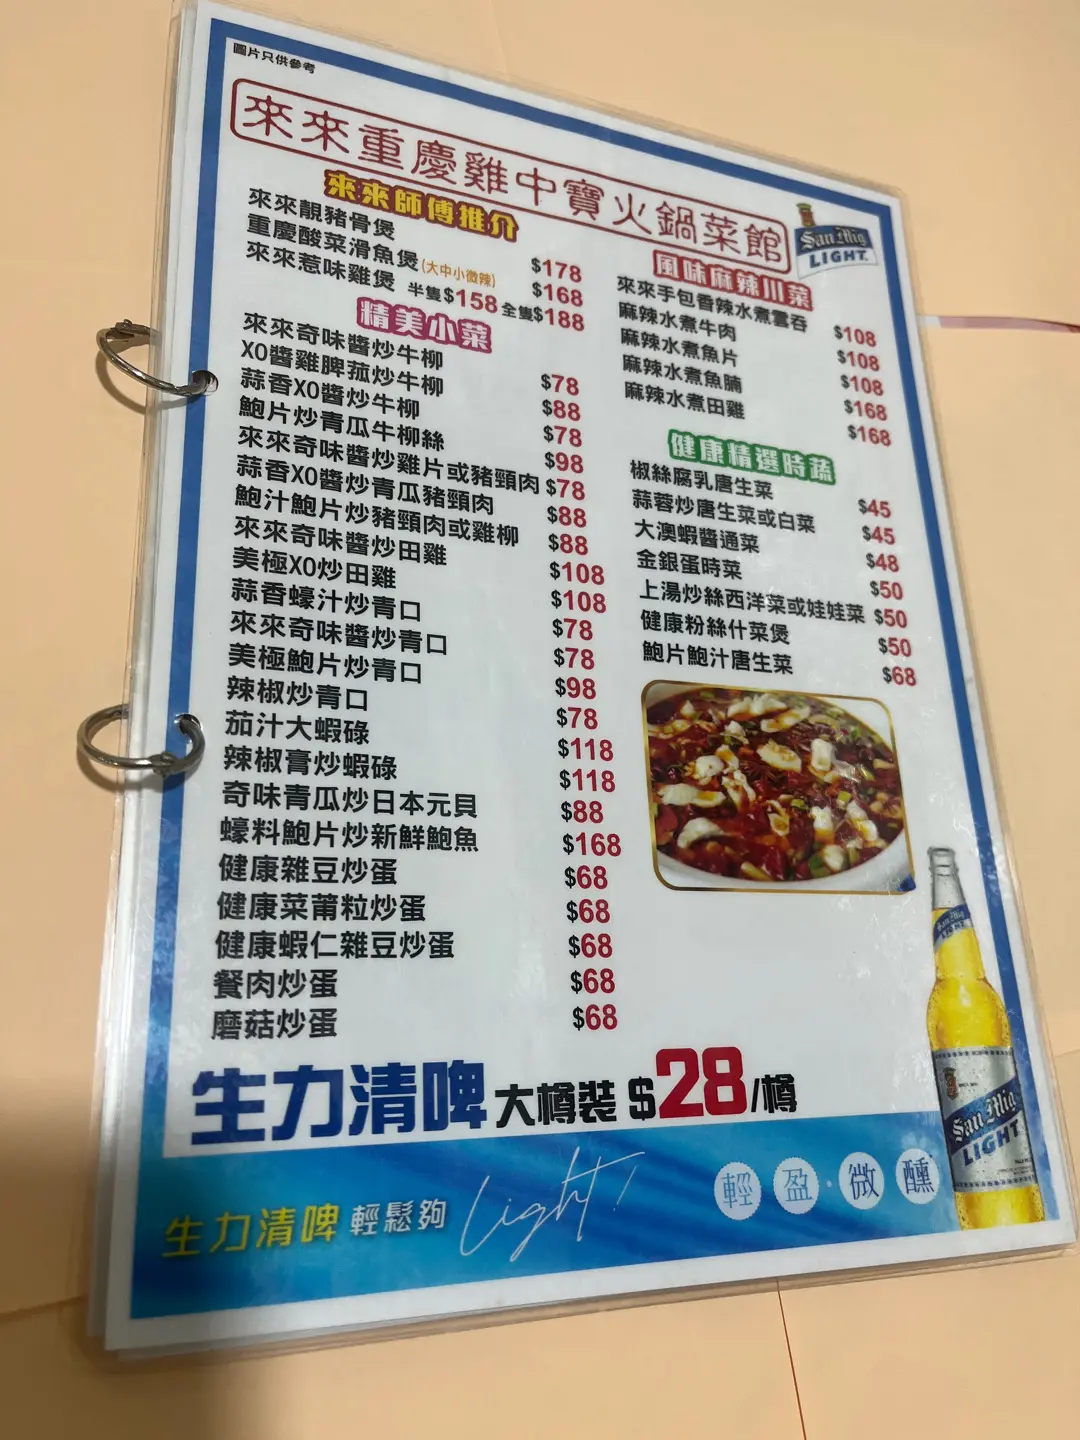 圖片只供參考
來來重慶雞中寶火鍋菜館
San Mig
LIGHT
來來師傅推介
來來靚豬骨煲 $178
重慶酸菜滑魚煲(大中小微辣) $168
來來惹味雞煲 半隻$158 全隻$188
精美小菜
來來奇味醬炒牛柳 $78
XO醬雞脾菰炒牛柳 $88
蒜香XO醬炒牛柳 $78
鮑片炒青瓜牛柳絲 $98
來來奇味醬炒雞片或豬頸肉 $78
蒜香XO醬炒青瓜豬頸肉 $88
鮑汁鮑片炒豬頸肉或雞柳 $88
來來奇味醬炒田雞 $108
美極XO炒田雞 $108
蒜香蠔汁炒青口 $78
來來奇味醬炒青口 $78
美極鮑片炒青口 $98
辣椒炒青口 $78
茄汁大蝦碌 $118
辣椒膏炒蝦碌 $118
奇味青瓜炒日本元貝 $88
蠔料鮑片炒新鮮鮑魚 $168
健康雜豆炒蛋 $68
健康菜莆粒炒蛋 $68
健康蝦仁雜豆炒蛋 $68
餐肉炒蛋 $68
磨菇炒蛋 $68
風味麻辣川菜
來來手包香辣水煮雲吞 $108
麻辣水煮牛肉 $108
麻辣水煮魚片 $108
麻辣水煮魚腩 $168
麻辣水煮田雞 $168
健康精選時蔬
椒絲腐乳唐生菜 $45
蒜蓉炒唐生菜或白菜 $45
大澳蝦醬通菜 $48
金銀蛋時菜 $50
上湯炒絲西洋菜或娃娃菜 $50
健康粉絲什菜煲 $50
鮑片鮑汁唐生菜 $68
生力清啤 大樽裝 $28/樽
生力清啤 輕鬆夠 Light!
輕盈·微醺
San Mig
LIGHT